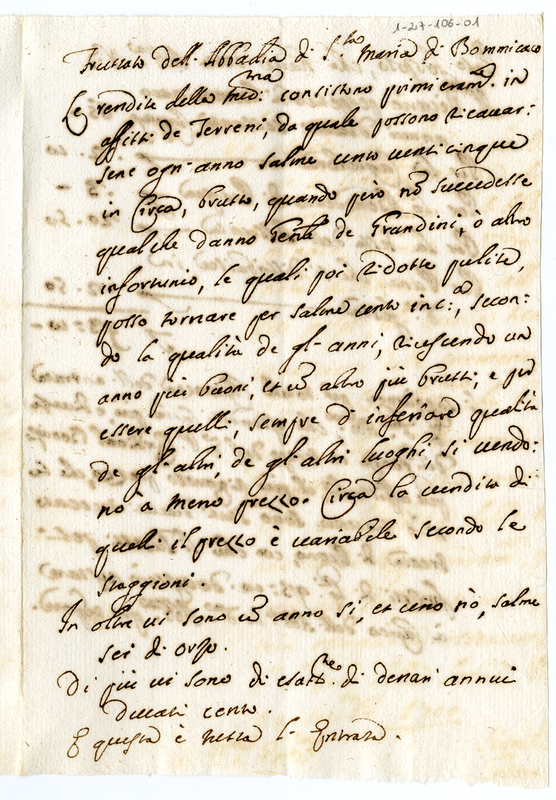 1-27-106-01
Fruttato dell' Abbadia di S.ta Maria di Bommicaco
Le rendite della med:ma consistono primieram.te in
affitti de Terreni, da quale possono ricavar:
sene ogn' anno salme cento venti cinque
in Circa, brutto, quando però nõ succedesse
qualche danno de Grandini, ò altro
infortunio, le quali poi ridotte pulite,
posso tornare per salme cento in secon:
do la qualità de gl' anni, riescendo un
anno più buoni, et ũ altro più brutti, e per
essere quelli, sempre d' inferiore qualità
de gl' altri, de gl' altri luoghi, si vendo:
nò à meno prezzo. Circa la vendita di
quelli il prezzo è variabile secondo le
staggioni.
In oltre vi sono ũ anno si, et uno nò, salme
sei di orzo.
Di più vi sono di esatt.ne di denari annui
Ducati cento.
E questa è tutta l' Entrata.